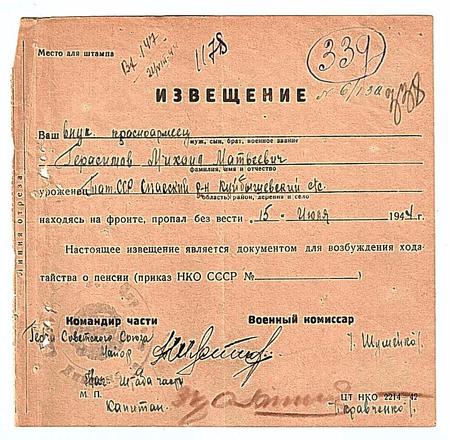 Место для штампа
Вх 147
1178
339
ИЗВЕЩЕНИЕ
№ 6/13а
Ваш внук красноармеец
муж, сын, брат, военное звание
Герасимов Михаил Матвеевич
фамилия, имя и отчество
уроженец Тат.ССР Спасский р-н Куйбышевский с/с
область, район, деревни и село
находясь на фронте, пропал без вести 15 - Июля 1944 г.
Настоящее извещение является документом для возбуждения хода-
тайства о пенсии (приказ НКО СССР №)
Линия отреза
Командир части Военный комиссар
Герой Советского Союза
Майор
/ Шуменко /
Штаба части
М. П.
Капитан
ЦТ НКО 2214-42
/ Кравченко /